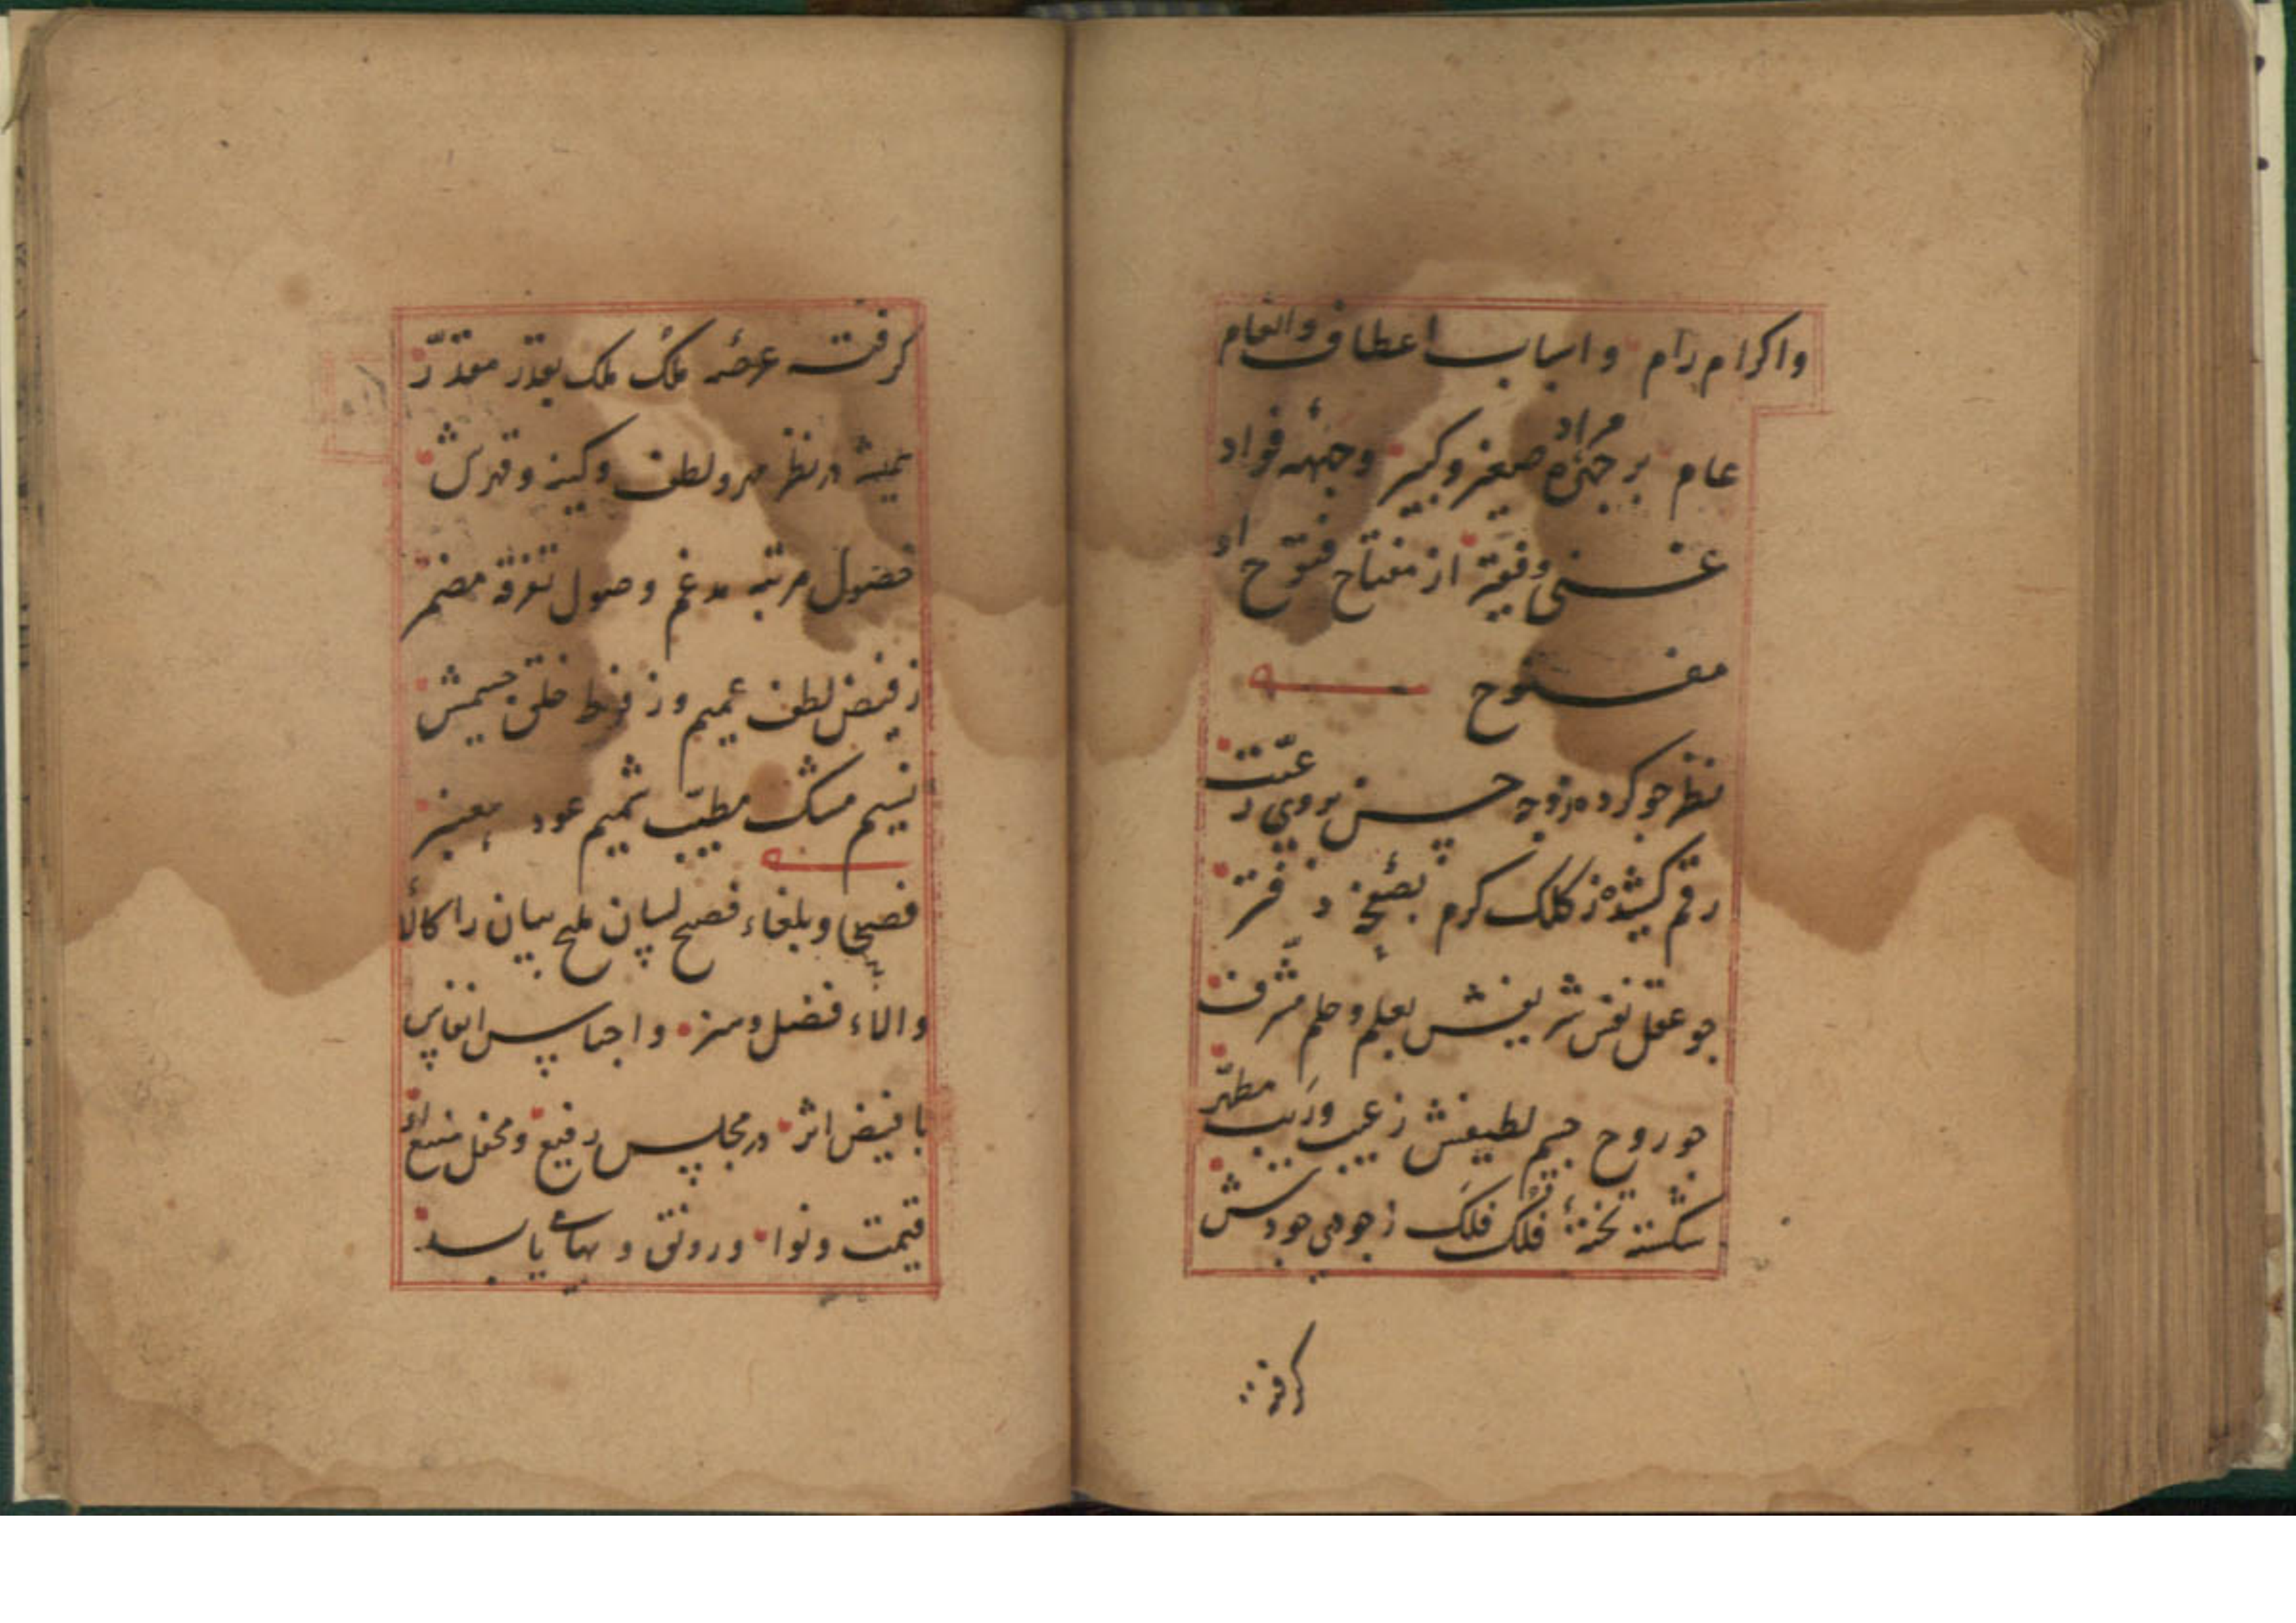 واکرام رام واسباب اعطاف وانعام
عام بر چهرهٔ مراد صغیر وکبیر وجبههٔ فواد
غنی وفقیر از مفتاح فتوح او
مفتوح
نظر جو کرده زوجه حسن بروی رعیت
رقم کشیده ز کلک کرم بصفحهٔ دفتر
جو عقل نفس شریفش بعلم وحلم مشرف
جو روح جسم لطیفش ز عیب وریب مطهر
شکسته تختهٔ فلک فلک ز جوی جودش
کرفته
کرفته عرصهٔ ملک ملک بقدر مقدر
همیشه در نظر مهر ولطف وکینه وقهرش
حصول مرتبه مدغم وصول تفرقه مضمر
ز فیض لطف عمیم وز فرط خلق جسیمش
نسیم مشک مطیب شمیم عود معنبر
فصحا وبلغاء فصیح لسان ملیح بیان را کالا
والاء فضل وهنر واجناس انفاس
با فیض اثر در مجلس رفیع ومحفل منیع او
قیمت ونوا ورونق وبهای یابد